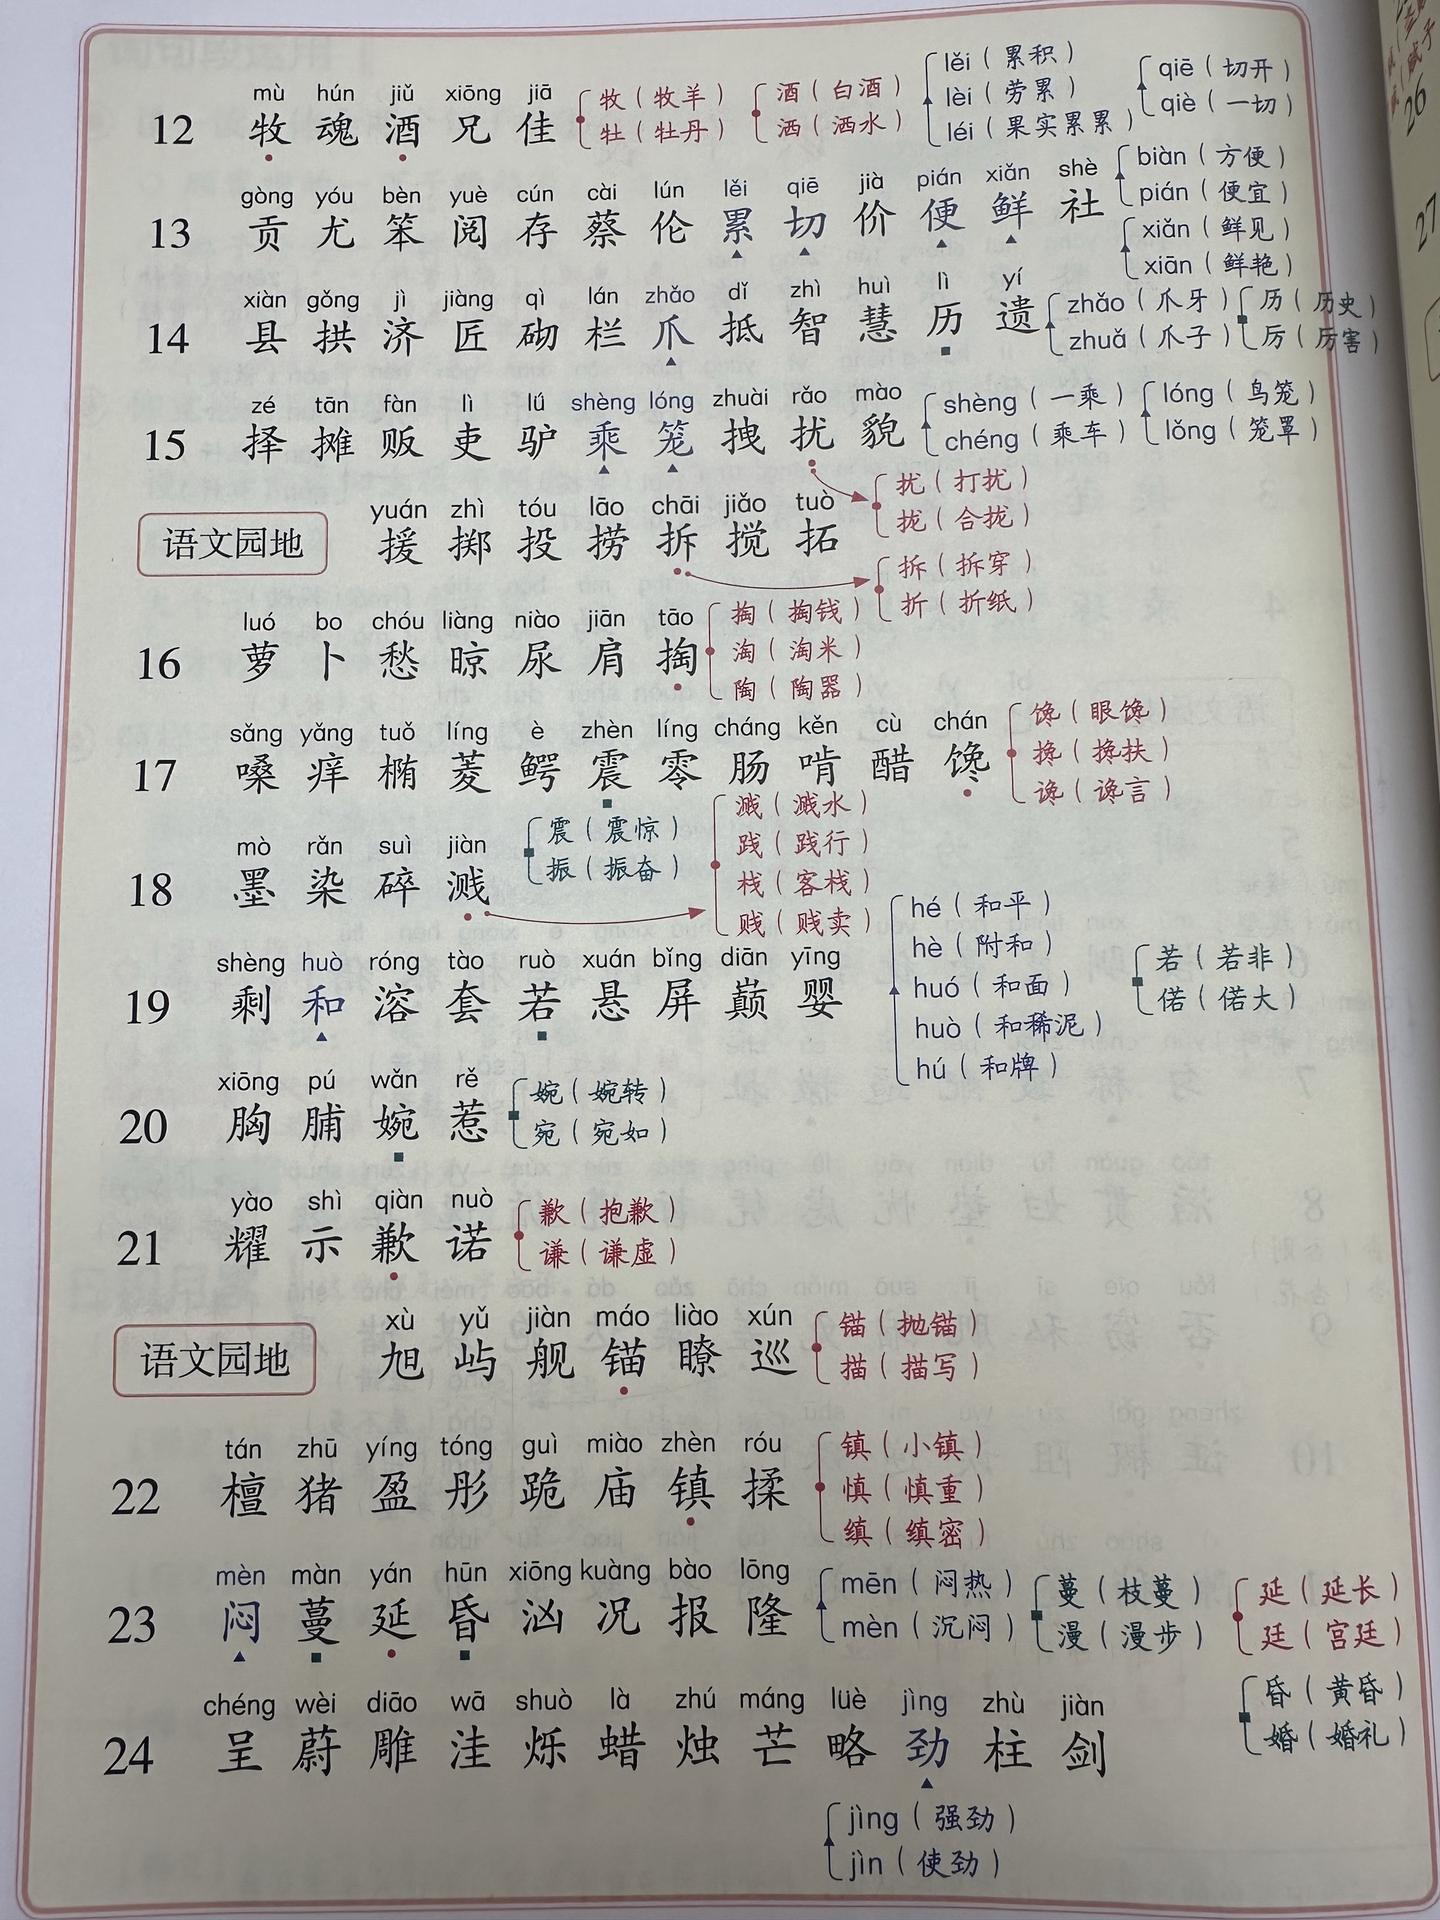 mù hún jiǔ xiōng jiā
12 牧 魂 酒 兄 佳
牧（牧羊）
牡（牡丹）
酒（白酒）
洒（洒水）
lěi（累积）
lèi（劳累）
léi（果实累累）
qiē（切开）
qiè（一切）
gòng yóu bèn yuè cún cài lún lěi qiē jià pián xiǎn shè
13 贡 尤 笨 阅 存 蔡 伦 累 切 价 便 鲜 社
biàn（方便）
pián（便宜）
xiǎn（鲜见）
xiān（鲜艳）
xiàn gǒng jì jiàng qì lán zhǎo dǐ zhì huì lì yí
14 县 拱 济 匠 砌 栏 爪 抵 智 慧 历 遗
zhǎo（爪牙）
zhuǎ（爪子）
历（历史）
厉（厉害）
zé tān fàn lì lǘ shèng lóng zhuài rǎo mào
15 择 摊 贩 吏 驴 乘 笼 拽 扰 貌
shèng（一乘）
chéng（乘车）
lóng（鸟笼）
lǒng（笼罩）
扰（打扰）
拢（合拢）
yuán zhì tóu lāo chāi jiǎo tuò
语文园地 援 掷 投 捞 拆 搅 拓
拆（拆穿）
折（折纸）
luó bo chóu liàng niào jiān tāo
16 萝 卜 愁 晾 尿 肩 掏
掏（掏钱）
淘（淘米）
陶（陶器）
sǎng yǎng tuǒ líng è zhèn líng cháng kěn cù chán
17 嗓 痒 椭 菱 鳄 震 零 肠 啃 醋 馋
馋（眼馋）
搀（搀扶）
谗（谗言）
震（震惊）
振（振奋）
mò rǎn suì jiàn
18 墨 染 碎 溅
溅（溅水）
践（践行）
栈（客栈）
贱（贱卖）
shèng huò róng tào ruò xuán bǐng diān yīng
19 剩 和 溶 套 若 悬 屏 巅 婴
hé（和平）
hè（附和）
huó（和面）
huò（和稀泥）
hú（和牌）
若（若非）
偌（偌大）
xiōng pú wǎn rě
20 胸 脯 婉 惹
婉（婉转）
宛（宛如）
yào shì qiàn nuò
21 耀 示 歉 诺
歉（抱歉）
谦（谦虚）
xù yǔ jiàn máo liào xún
语文园地 旭 屿 舰 锚 瞭 巡
锚（抛锚）
描（描写）
tán zhū yíng tóng guì miào zhèn róu
22 檀 猪 盈 彤 跪 庙 镇 揉
镇（小镇）
慎（慎重）
缜（缜密）
mèn màn yán hūn xiōng kuàng bào lōng
23 闷 蔓 延 昏 汹 况 报 隆
mēn（闷热）
mèn（沉闷）
蔓（枝蔓）
漫（漫步）
延（延长）
廷（宫廷）
昏（黄昏）
婚（婚礼）
chéng wèi diāo wā shuò là zhú máng lüè jìng zhù jiàn
24 呈 蔚 雕 洼 烁 蜡 烛 芒 略 劲 柱 剑
jìng（强劲）
jìn（使劲）
26
27